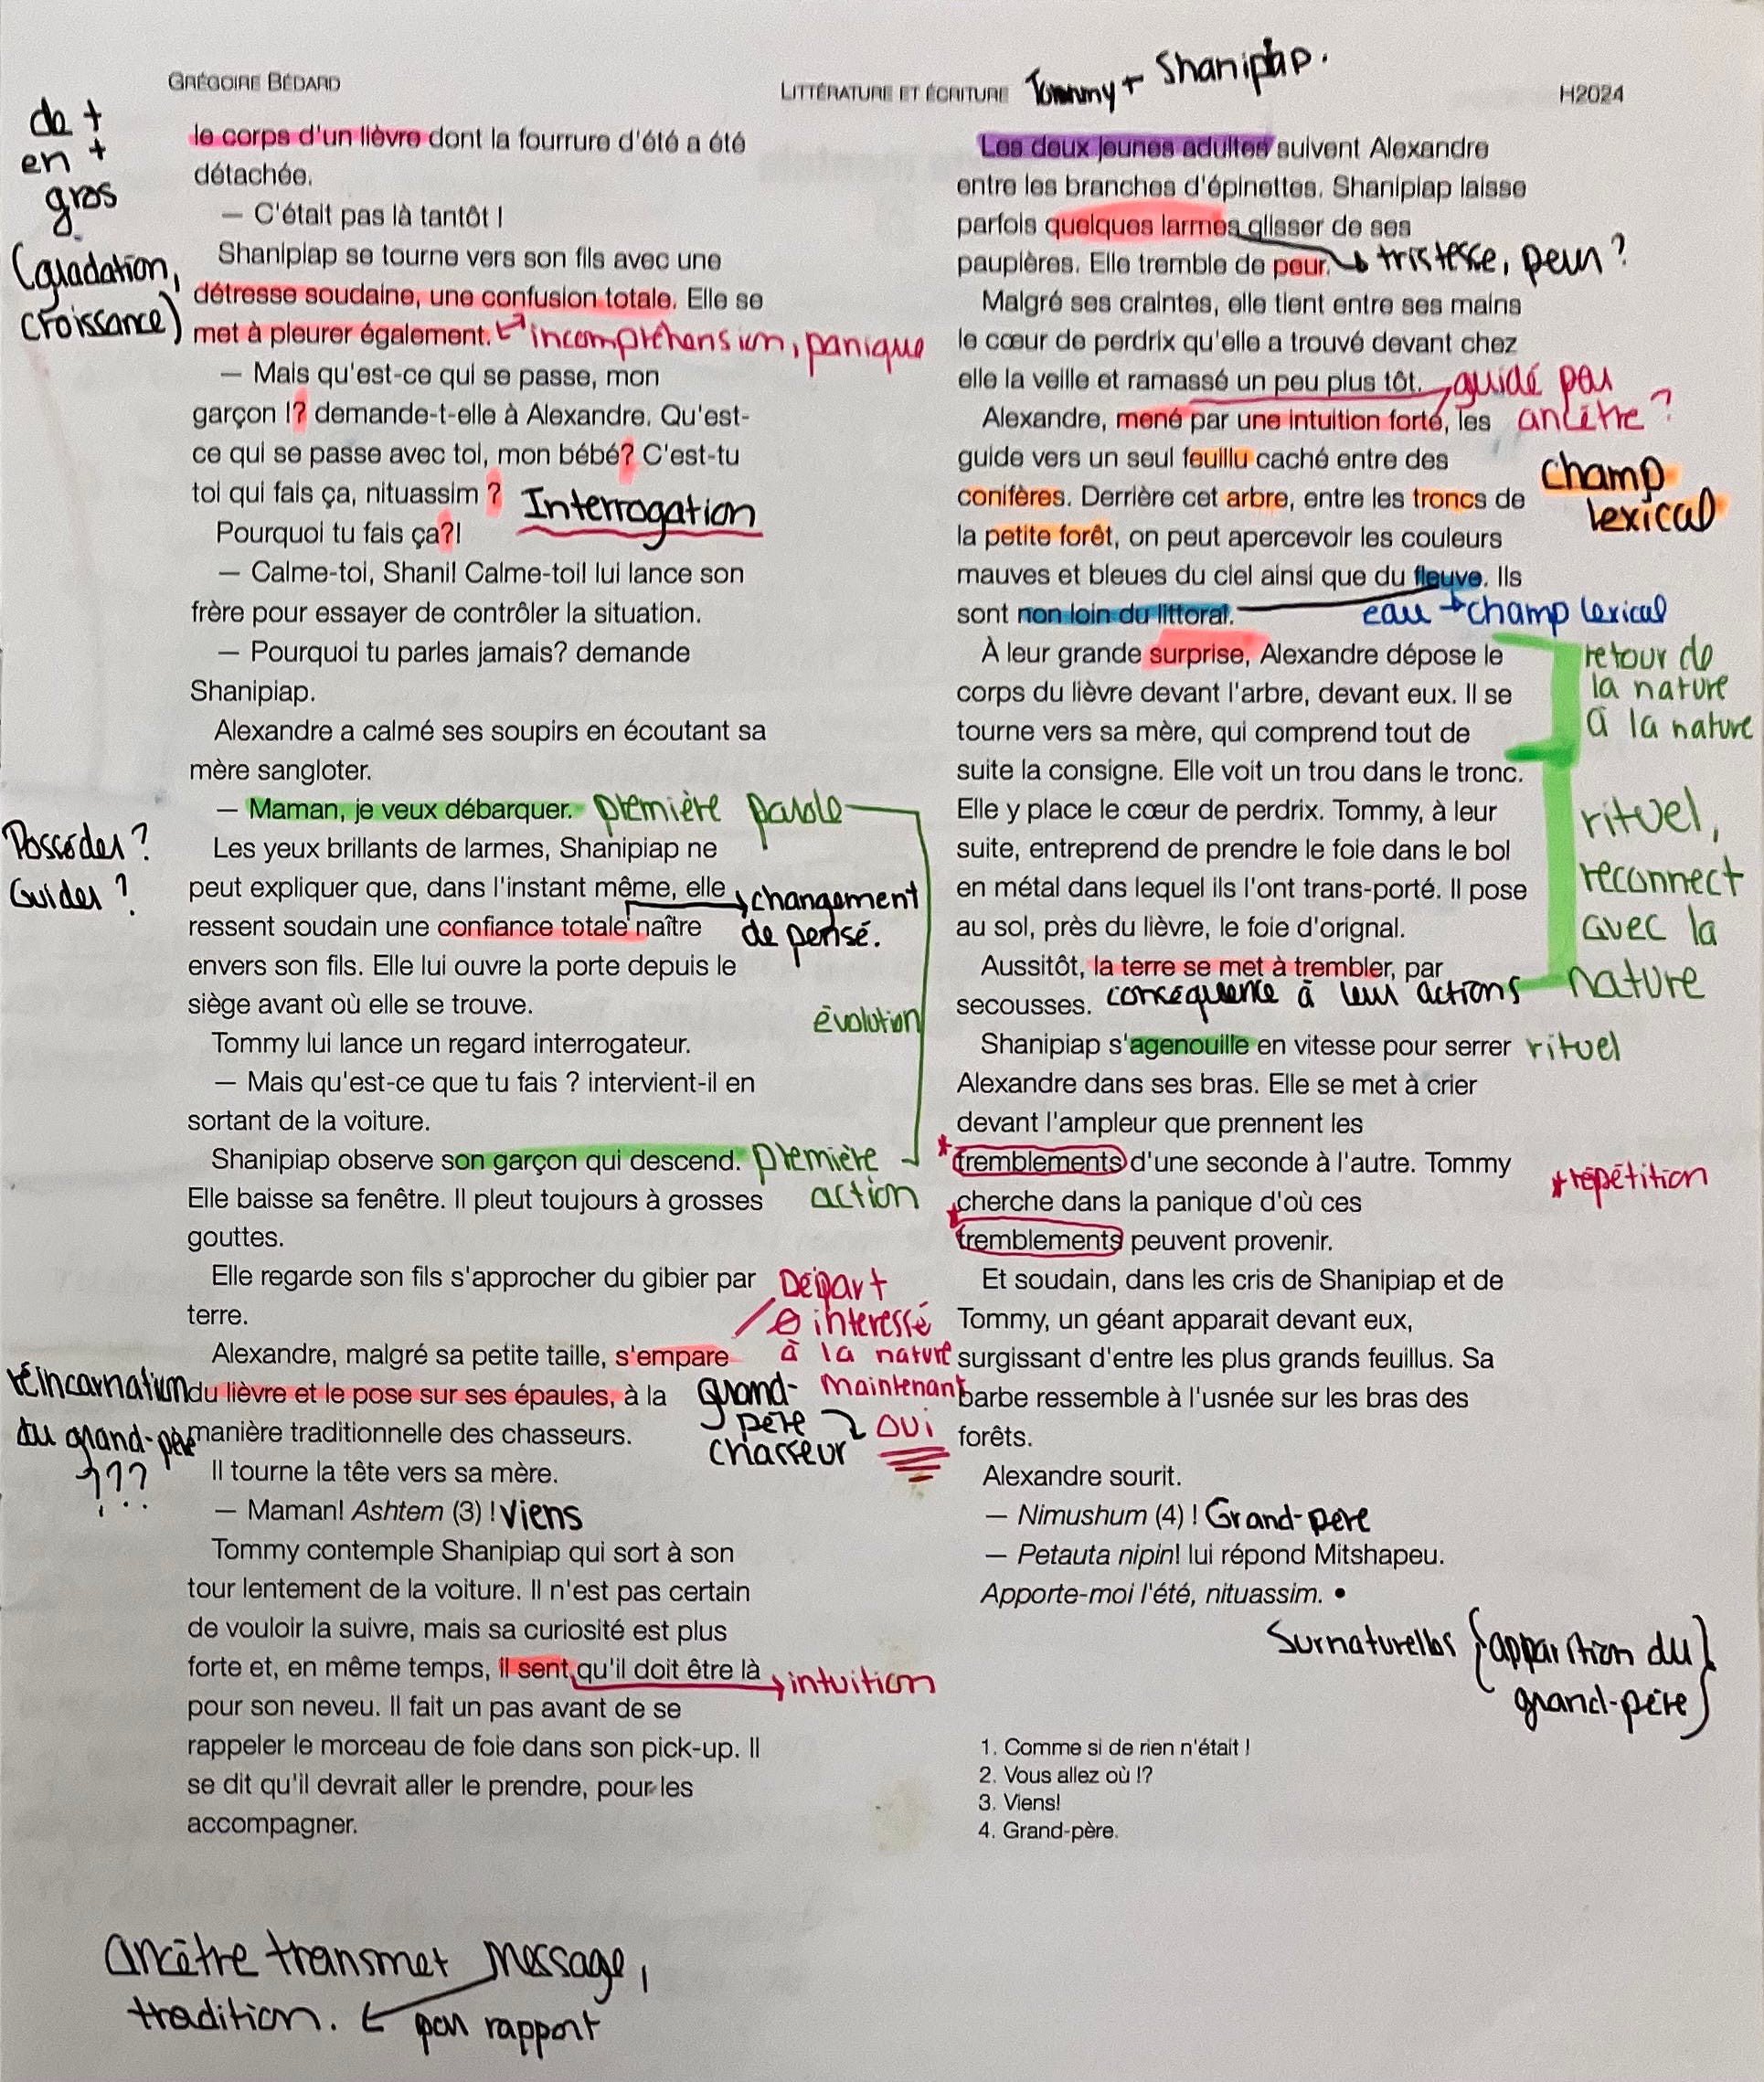 GRÉGOIRE BÉDARD
LITTÉRATURE ET ÉCRITURE
Tommy + Shanipiap.
H2024
de +
en +
gros
(gradation,
croissance)
le corps d'un lièvre dont la fourrure d'été a été
détachée.
— C'était pas là tantôt !
Shanipiap se tourne vers son fils avec une
détresse soudaine, une confusion totale. Elle se
met à pleurer également.
incompréhension, panique
— Mais qu'est-ce qui se passe, mon
garçon !? demande-t-elle à Alexandre. Qu'est-
ce qui se passe avec toi, mon bébé? C'est-tu
toi qui fais ça, nituassim ?
Interrogation
Pourquoi tu fais ça?!
— Calme-toi, Shani! Calme-toi! lui lance son
frère pour essayer de contrôler la situation.
— Pourquoi tu parles jamais? demande
Shanipiap.
Alexandre a calmé ses soupirs en écoutant sa
mère sangloter.
— Maman, je veux débarquer.
première parole
Posséder ?
Guider ?
Les yeux brillants de larmes, Shanipiap ne
peut expliquer que, dans l'instant même, elle
ressent soudain une confiance totale naître
changement
de pensé.
envers son fils. Elle lui ouvre la porte depuis le
siège avant où elle se trouve.
évolution
Tommy lui lance un regard interrogateur.
— Mais qu'est-ce que tu fais ? intervient-il en
sortant de la voiture.
Shanipiap observe son garçon qui descend.
première
action
Elle baisse sa fenêtre. Il pleut toujours à grosses
gouttes.
Elle regarde son fils s'approcher du gibier par
terre.
Départ
intéressé
à la nature
Maintenant
oui
Alexandre, malgré sa petite taille, s'empare
du lièvre et le pose sur ses épaules, à la
manière traditionnelle des chasseurs.
grand-
père
chasseur
réincarnation
du grand-père
???
Il tourne la tête vers sa mère.
— Maman! Ashtem (3) !
Viens
Tommy contemple Shanipiap qui sort à son
tour lentement de la voiture. Il n'est pas certain
de vouloir la suivre, mais sa curiosité est plus
forte et, en même temps, il sent qu'il doit être là
intuition
pour son neveu. Il fait un pas avant de se
rappeler le morceau de foie dans son pick-up. Il
se dit qu'il devrait aller le prendre, pour les
accompagner.
Ancêtre transmet message,
tradition.
par rapport
Les deux jeunes adultes suivent Alexandre
entre les branches d'épinettes. Shanipiap laisse
parfois quelques larmes glisser de ses
paupières. Elle tremble de peur.
tristesse, peur ?
Malgré ses craintes, elle tient entre ses mains
le cœur de perdrix qu'elle a trouvé devant chez
elle la veille et ramassé un peu plus tôt.
guidé par
ancêtre ?
Alexandre, mené par une intuition forte, les
guide vers un seul feuillu caché entre des
conifères. Derrière cet arbre, entre les troncs de
champ
lexical
la petite forêt, on peut apercevoir les couleurs
mauves et bleues du ciel ainsi que du fleuve. Ils
sont non loin du littoral.
eau champ lexical
À leur grande surprise, Alexandre dépose le
corps du lièvre devant l'arbre, devant eux. Il se
tourne vers sa mère, qui comprend tout de
retour de
la nature
à la nature
suite la consigne. Elle voit un trou dans le tronc.
Elle y place le cœur de perdrix. Tommy, à leur
suite, entreprend de prendre le foie dans le bol
en métal dans lequel ils l'ont trans-porté. Il pose
au sol, près du lièvre, le foie d'orignal.
rituel,
reconnect
avec la
nature
Aussitôt, la terre se met à trembler, par
secousses.
conséquence à leur actions
Shanipiap s'agenouille en vitesse pour serrer
rituel
Alexandre dans ses bras. Elle se met à crier
devant l'ampleur que prennent les
tremblements d'une seconde à l'autre. Tommy
* répétition
cherche dans la panique d'où ces
tremblements peuvent provenir.
Et soudain, dans les cris de Shanipiap et de
Tommy, un géant apparait devant eux,
surgissant d'entre les plus grands feuillus. Sa
barbe ressemble à l'usnée sur les bras des
forêts.
Alexandre sourit.
— Nimushum (4) !
Grand-père
— Petauta nipin! lui répond Mitshapeu.
Apporte-moi l'été, nituassim. •
Surnaturelles {apparition du
grand-père}
1. Comme si de rien n'était !
2. Vous allez où !?
3. Viens!
4. Grand-père.